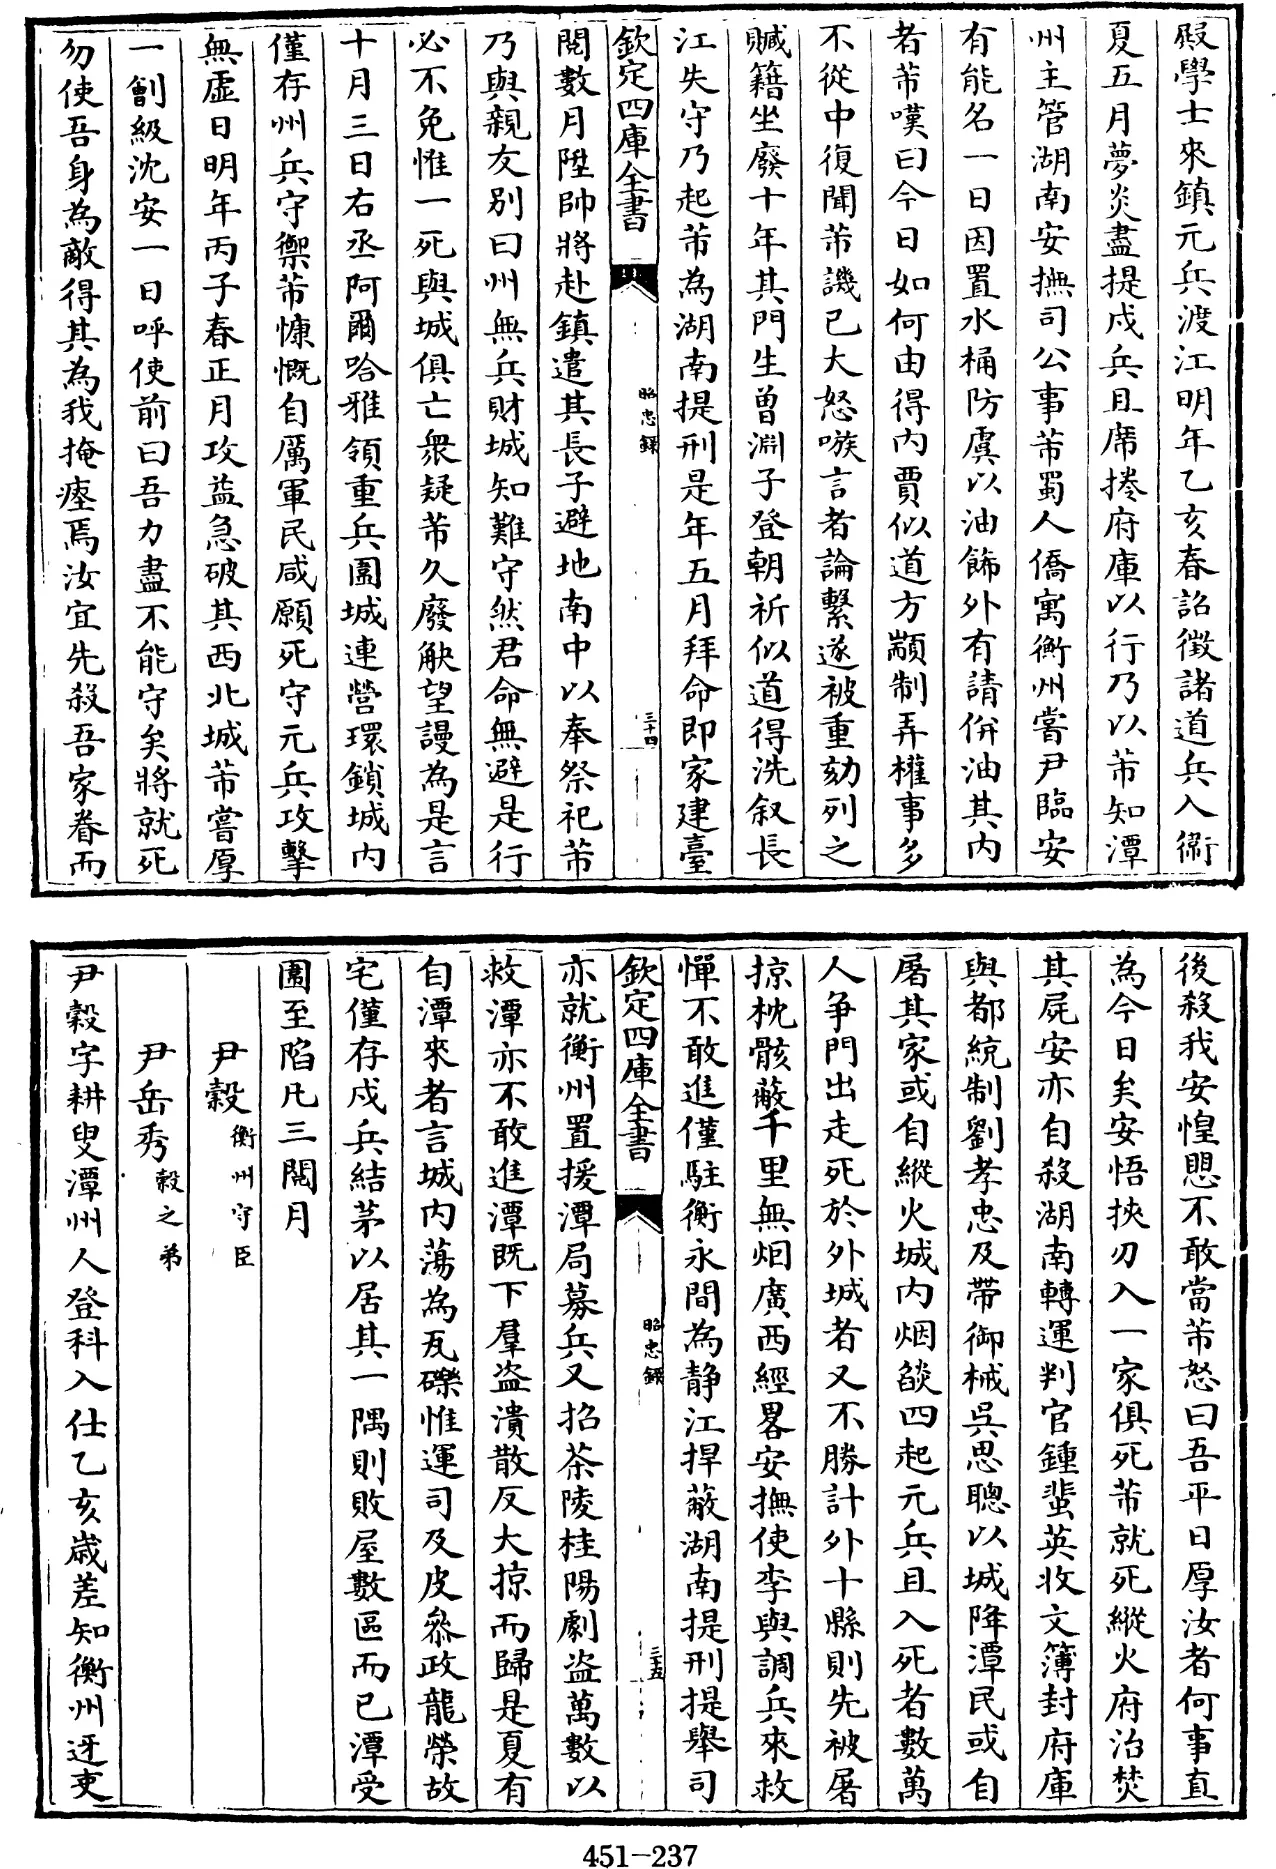 殿學士來鎮元兵渡江明年乙亥春詔徵諸道兵入衛
夏五月夢炎盡提戍兵且席捲府庫以行乃以芾知潭
州主管湖南安撫司公事芾蜀人僑寓衡州嘗尹臨安
有能名一日因置水桶防虞以油飾外有請併油其内
者芾嘆曰今日如何由得内賈似道方顓制弄權事多
不從中復聞芾譏己大怒嗾言者論繫遂被重劾列之
贓籍坐廢十年其門生曾淵子登朝祈似道得洗叙長
江失守乃起芾為湖南提刑是年五月拜命即家建臺
欽定四庫全書
昭忠錄
三十四
閱數月陞帥將赴鎮遣其長子避地南中以奉祭祀芾
乃與親友别曰州無兵財城知難守然君命無避是行
必不免惟一死與城俱亡衆疑芾久廢觖望謾為是言
十月三日右丞阿爾哈雅領重兵圍城連營環鎖城内
僅存州兵守禦芾慷慨自厲軍民咸願死守元兵攻擊
無虛日明年丙子春正月攻益急破其西北城芾嘗厚
一劊級沈安一日呼使前曰吾力盡不能守矣將就死
勿使吾身為敵得其為我掩瘞焉汝宜先殺吾家眷而
後殺我安惶愳不敢當芾怒曰吾平日厚汝者何事直
為今日矣安悟挾刃入一家俱死芾就死縱火府治焚
其屍安亦自殺湖南轉運判官鍾蜚英收文簿封府庫
與都統制劉孝忠及帶御械吳思聰以城降潭民或自
屠其家或自縱火城内烟燄四起元兵且入死者數萬
人争門出走死於外城者又不勝計外十縣則先被屠
掠枕骸蔽千里無烟廣西經畧安撫使李與調兵來救
憚不敢進僅駐衡永間為静江捍蔽湖南提刑提舉司
欽定四庫全書
昭忠錄
三十五
亦就衡州置援潭局募兵又招茶陵桂陽劇盗萬數以
救潭亦不敢進潭既下羣盗潰散反大掠而歸是夏有
自潭來者言城内蕩為瓦礫惟運司及皮叅政龍榮故
宅僅存戍兵結茅以居其一隅則敗屋數區而已潭受
圍至陷凡三閱月
尹穀衡州守臣
尹岳秀穀之弟
尹穀字耕叟潭州人登科入仕乙亥歲差知衡州迓吏
451-237